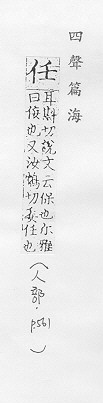 四聲篇海
任
耳斟切說文云保也尔雅
曰佞也又汝鴆切責任也
(人部.p561)